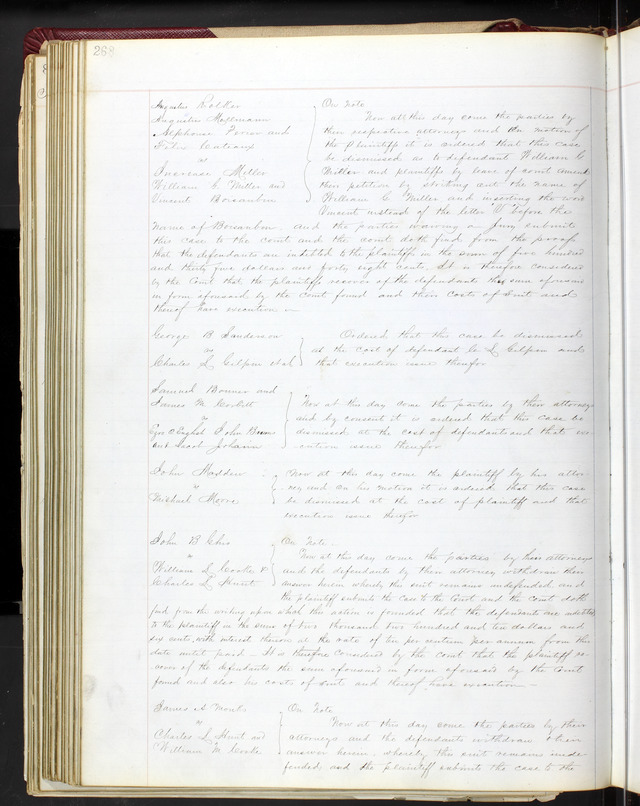 268
Augustus Rolker
Augustus Mollmann
Alphonse Poirer and
v
Increase Miller
William C. Miller and
Vincent Boisaubin
On Note
Now at this day come the parties by
their respective attorneys and on motion of
the plaintiff it is ordered that this case
be dismissed as to defendant William C
Miller and plaintiffs by leave of court amend
their petition by striking out the name of
William C. Miller and inserting the word
Vincent instead of the letter V before the
name of Boisaubin. and the parties waiving a Jury submit
this case to the court and the court doth find from the proofs
that the defendants are indebted to the plaintiffs in the sum of five hundred
and thirty five dollars and forty eight cents. It is therefore considered
by the Court that the plaintiffs recover of the defendants the sum aforesaid
in form aforesaid by the Court found and their Costs of Suit and
thereof have execution —
George B. Sanderson
vs
Charles L Gilpin et al
Ordered that this case be dismissed
at the cost of defendant C. L Gilpin and
that execution issue therefor
Samuel Bonner and
James M. Corbitt
v
John Boone
and Jacob Johann
Now at this day come the parties by their attorneys
and by consent it is ordered that this case be
dismissed at the cost of defendants and that exe
cution issue therefor
John Madden
vs
Michael Moore
Now at this day come the plaintiff by his attor-
ney and on his motion it is ordered that this case
be dismissed at the cost of plaintiff and that
execution issue therefor
John B. Ghio
vs
William M Cooke &
Charles L Hunt
On Note
Now at this day come the parties by their attorneys
and the defendants by their attorney withdraw their
answer herein whereby the suit remains undefended and
the plaintiff submits the case to the Court and the Court doth
find from the writing upon which the action is founded that the defendants are indebted
to the plaintiff in the sum of two thousand two hundred and ten dollars and
six cents, with interest thereon at the rate of ten per centum per annum from this
date until paid — It is therefore Considered by the Court that the plaintiff re-
cover of the defendants the sum aforesaid in form aforesaid by the Court
found and also his costs of suit and thereof have execution —
James A Mont
vs
Charles L Hunt and
William M. Cooke
On Note
Now at this day come the parties by their
attorneys and the defendants withdraw their
answer herein whereby this suit remains unde
fended and the plaintiff submits the case to the